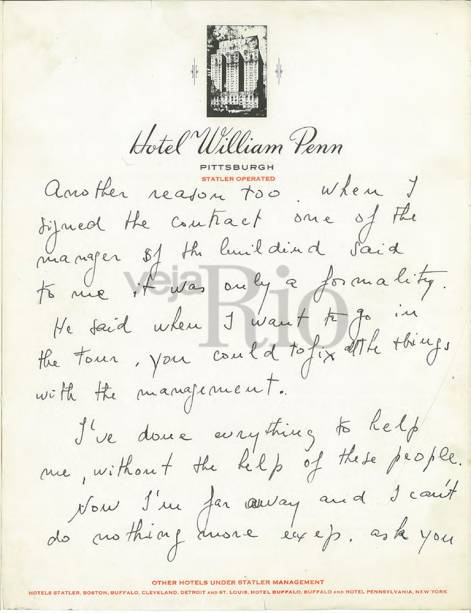 Hotel William Penn
PITTSBURGH
STATLER OPERATED
Another reason too. When I
signed the contract one of the
manager of the buildind said
to me it was only a formality.
He said when I want to go in
the tour, you could to fix all the things
with the management.
I've done evrything to help
me, without the help of these people.
Now I'm far away and I can't
do nothing more exep. ask you
veja Rio
OTHER HOTELS UNDER STATLER MANAGEMENT
HOTELS STATLER, BOSTON, BUFFALO, CLEVELAND, DETROIT AND ST. LOUIS, HOTEL BUFFALO, BUFFALO AND HOTEL PENNSYLVANIA, NEW YORK